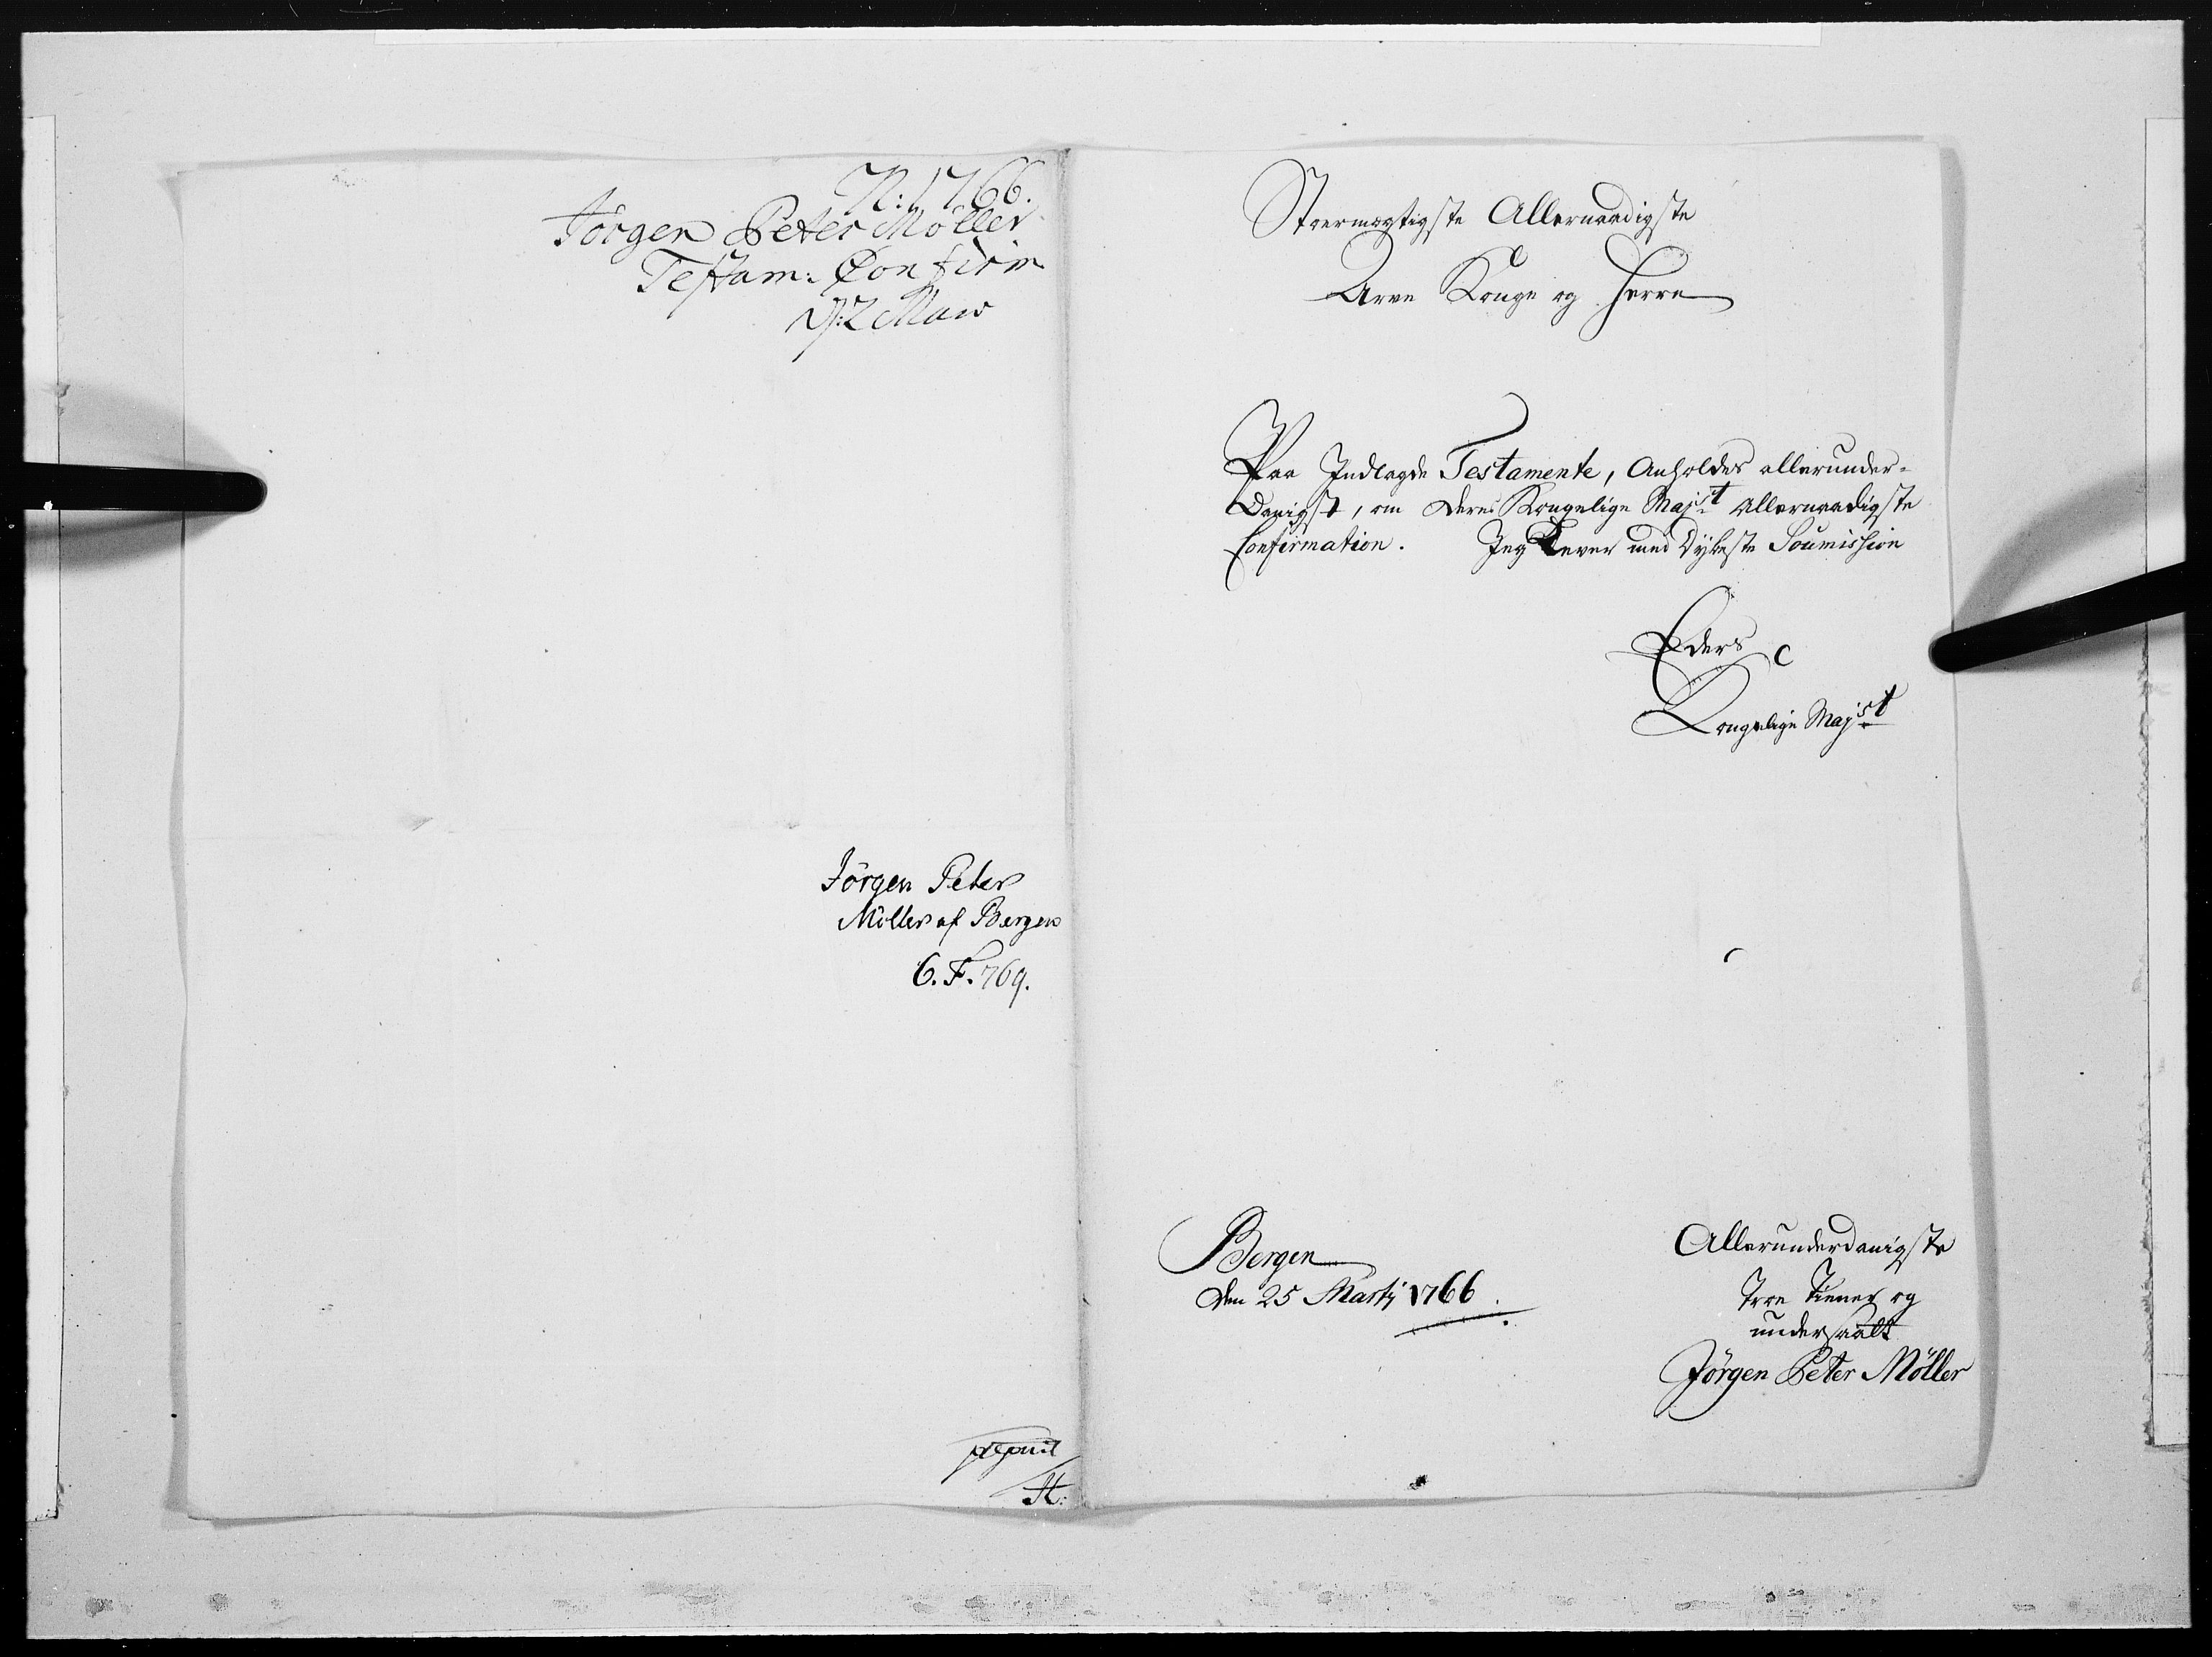 N: 1766.
Jörgen Peter Möller
Testam: Confirm
Jörgen Peter
Möller af Bergen
6. F. 769.
H:
Stoermægtigste Allernaadigste
Arve Konge og Herre
Paa Indlagde Testamente, Anholdes allerunder-
danigst, om Deres Kongelige Majst Allernaadigste
Confirmation. Jeg Lever med Dybeste Soumission
Eders
Kongelige Majst
Bergen
den 25 Martj 1766.
Allerunderdanigste
Troe Tiener og
undersaatt
Jörgen Peter Möller